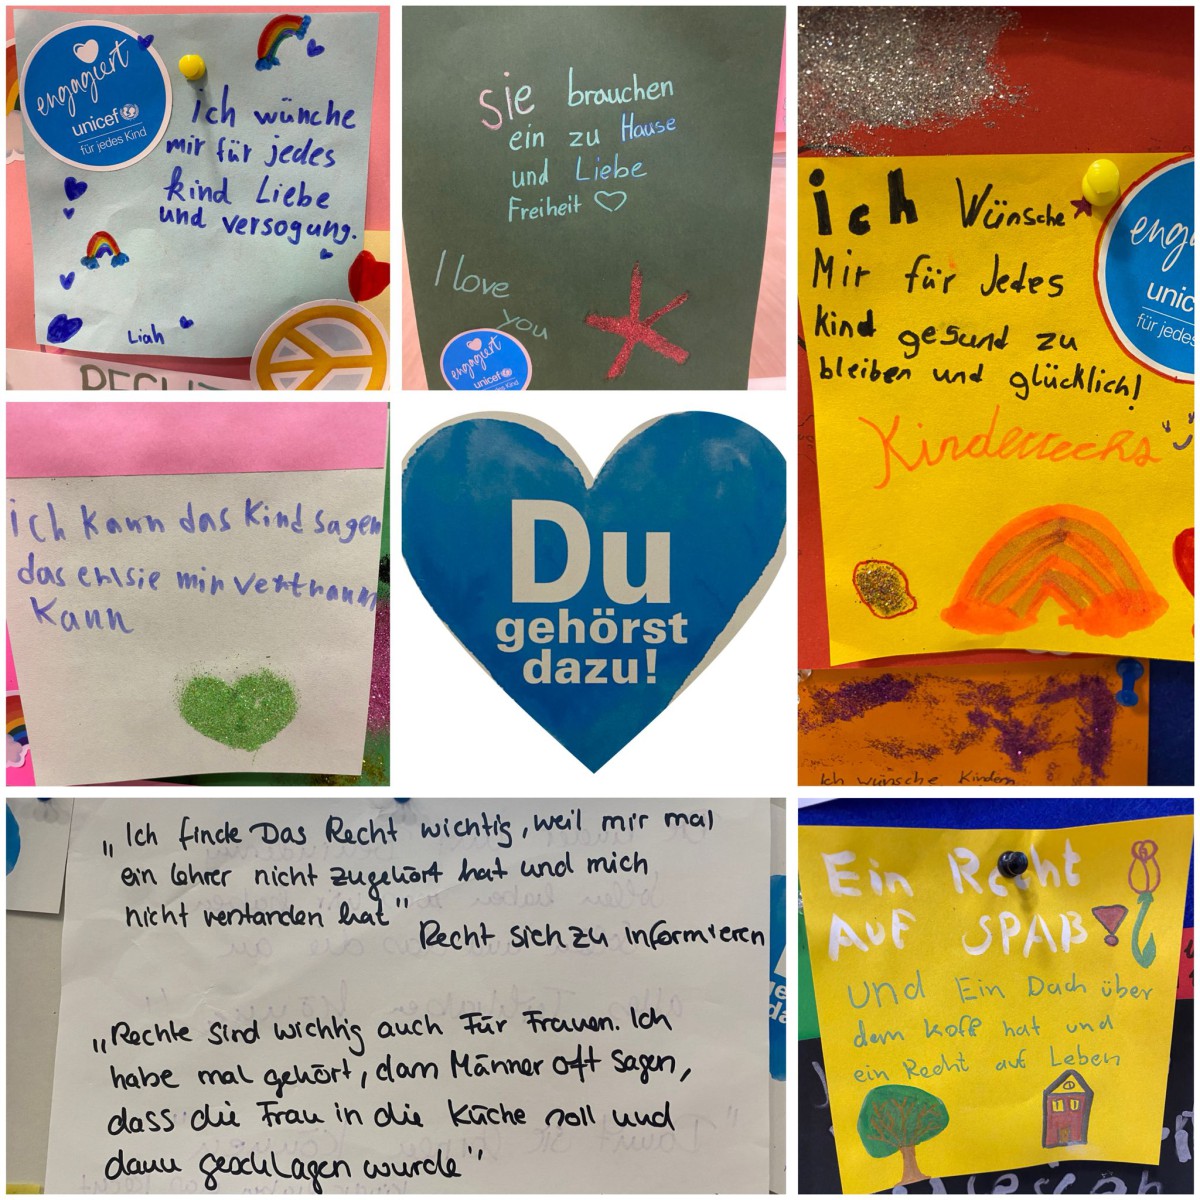 engagiert
unicef
für jedes Kind
ich wünche
mir für jedes
kind Liebe
und versogung.
Liah
RECHT
sie brauchen
ein zu Hause
und Liebe
Freiheit
I love
you
engagiert
unicef
ich Wünsche
Mir für Jedes
kind gesund zu
bleiben und glücklich!
Kinderrechs
unic
für jedes
Ich wünsche Kindern
ich kann das Kind sagen
das er/sie mir vertrauen
Kann
Du
gehörst
dazu!
„Ich finde Das Recht wichtig, weil mir mal
ein lehrer nicht zugehört hat und mich
nicht verstanden hat"
Recht sich zu informieren
„Rechte sind wichtig auch Für Frauen. Ich
habe mal gehört, dann Männer oft sagen,
dass die Frau in die Küche soll und
dann geschlagen wurde"
Ein Recht
AUF SPAß!
und Ein Dach über
dem Koff hat und
ein Recht auf Leben